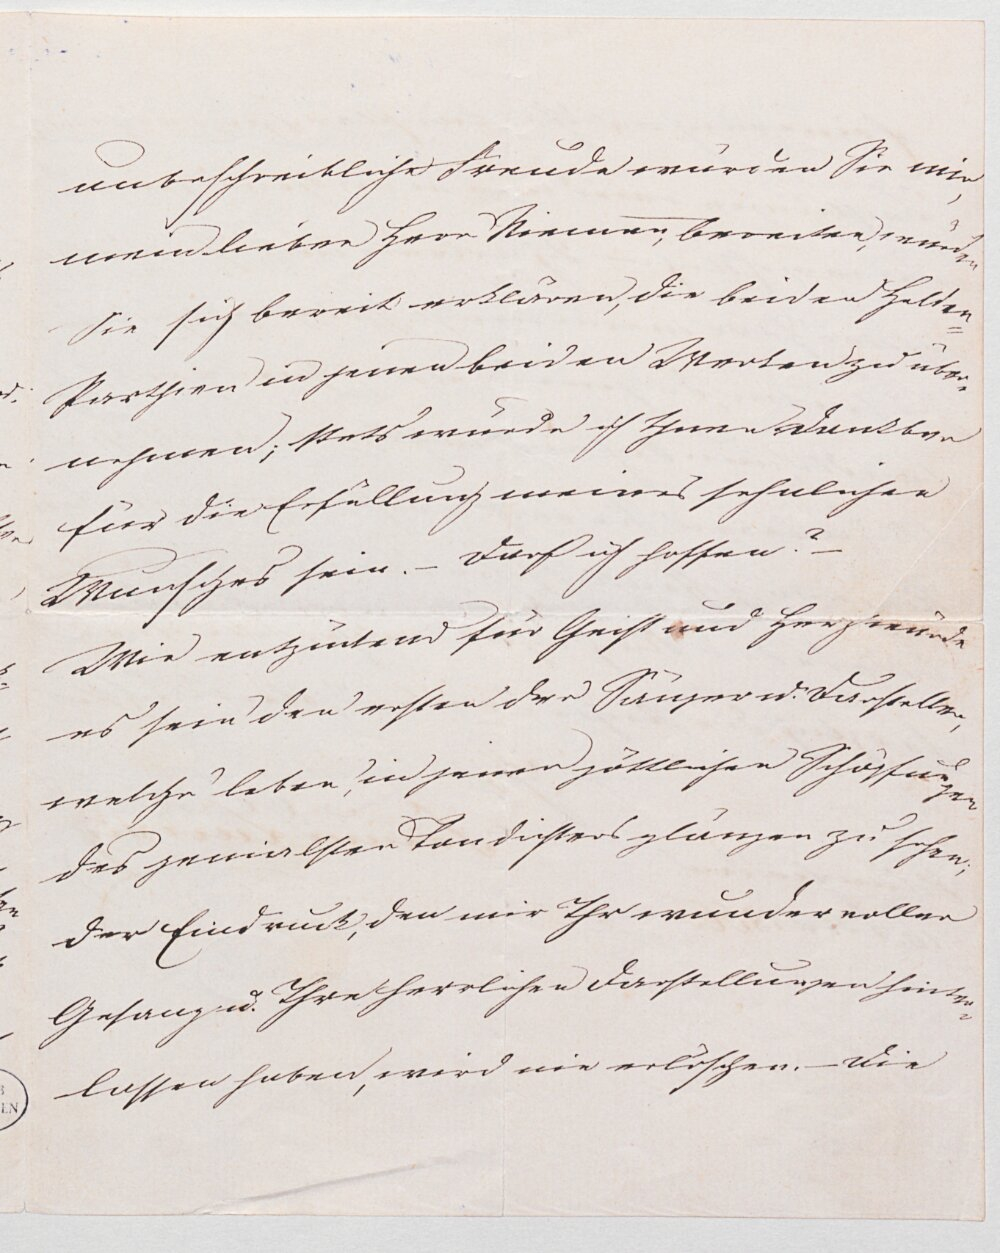 unbeschreibliche Freude würden Sie mir,
mein lieber Herr Niemann, bereiten, würden
Sie sich bereit erklären, die beiden Helden=
Parthien in jenen beiden Werken zu über=
nehmen; stets würde ich Ihnen dankbar
für die Erfüllung meines sehnlichen
Wunsches sein. – Darf ich hoffen? –
Wie entzückend für Geist und Herz würde
es sein den ersten der Sänger u. Darsteller,
welche leben, in jenen göttlichen Schöpfungen
des genialsten Tondichters glänzen zu sehen;
der Eindruck, den mir Ihr wundervoller
Gesang u. Ihre herrlichen Darstellungen hinter=
lassen haben, wird nie erlöschen. – Die